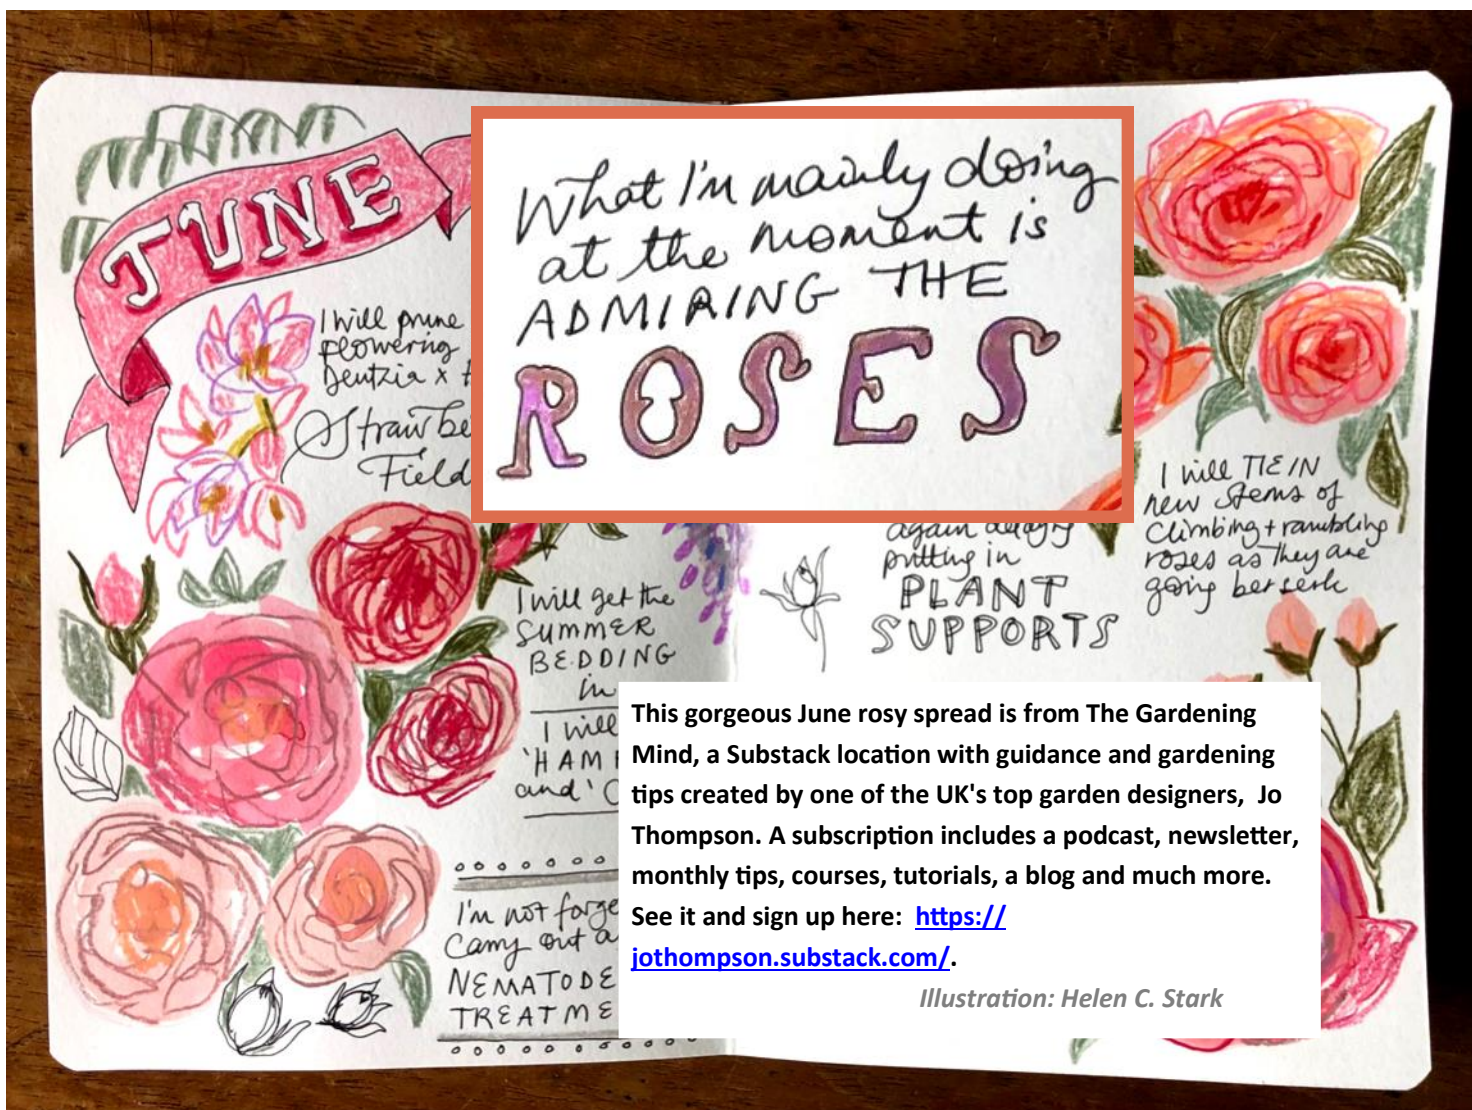 JUNE
I will prune
flowering
Deutzia x
Strawbe
Field
What I'm mainly doing
at the moment is
ADMIRING THE
ROSES
I will get the
SUMMER
BEDDING
in
I will
'HAM
and 'C
I'm not forge
carry out a
NEMATODE
TREATME
again delaying
putting in
PLANT
SUPPORTS
I will TIE IN
new stems of
climbing + rambling
roses as they are
going berserk
This gorgeous June rosy spread is from The Gardening
Mind, a Substack location with guidance and gardening
tips created by one of the UK's top garden designers,  Jo
Thompson. A subscription includes a podcast, newsletter,
monthly tips, courses, tutorials, a blog and much more.
See it and sign up here:  https://
jothompson.substack.com/.
Illustration: Helen C. Stark